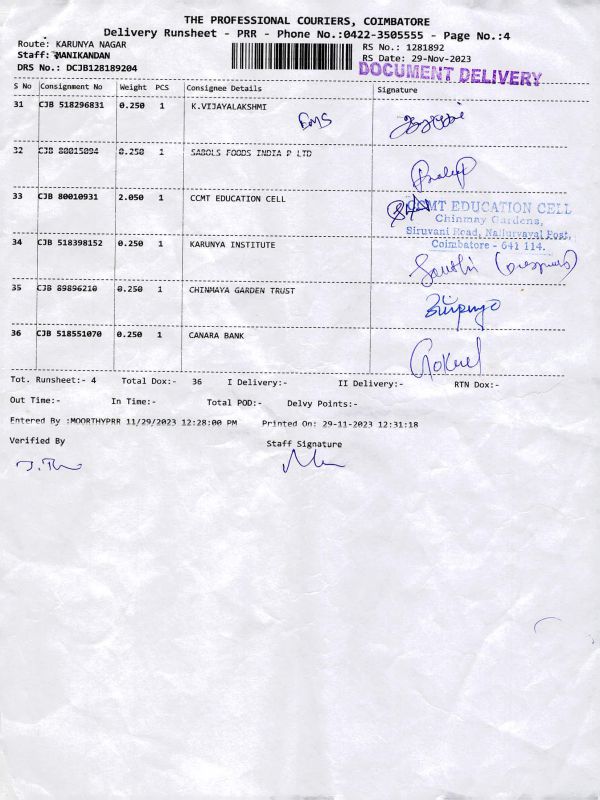 THE PROFESSIONAL COURIERS, COIMBATORE
Delivery Runsheet - PRR - Phone No.:0422-3505555 - Page No.:4
Route: KARUNYA NAGAR
RS No.: 1281892
Staff: MANIKANDAN
RS Date: 29-Nov-2023
DRS No.: DCJB128189204
DOCUMENT DELIVERY
S No Consignment No Weight PCS Consignee Details Signature
31 CJB 518296831 0.250 1 K.VIJAYALAKSHMI
32 CJB 80015894 0.250 1 SABOLS FOODS INDIA P LTD
33 CJB 80010931 2.050 1 CCMT EDUCATION CELL
CCMT EDUCATION CELL
Chinmay Gardens,
Siruvani Road, Nallurvayal Post,
Coimbatore - 641 114.
34 CJB 518398152 0.250 1 KARUNYA INSTITUTE
35 CJB 89896210 0.250 1 CHINMAYA GARDEN TRUST
36 CJB 518551070 0.250 1 CANARA BANK
Gokul
Tot. Runsheet:- 4 Total Dox:- 36 I Delivery:- II Delivery:- RTN Dox:-
Out Time:- In Time:- Total POD:- Delvy Points:-
Entered By :MOORTHYPRR 11/29/2023 12:28:00 PM Printed On: 29-11-2023 12:31:18
Verified By
Staff Signature